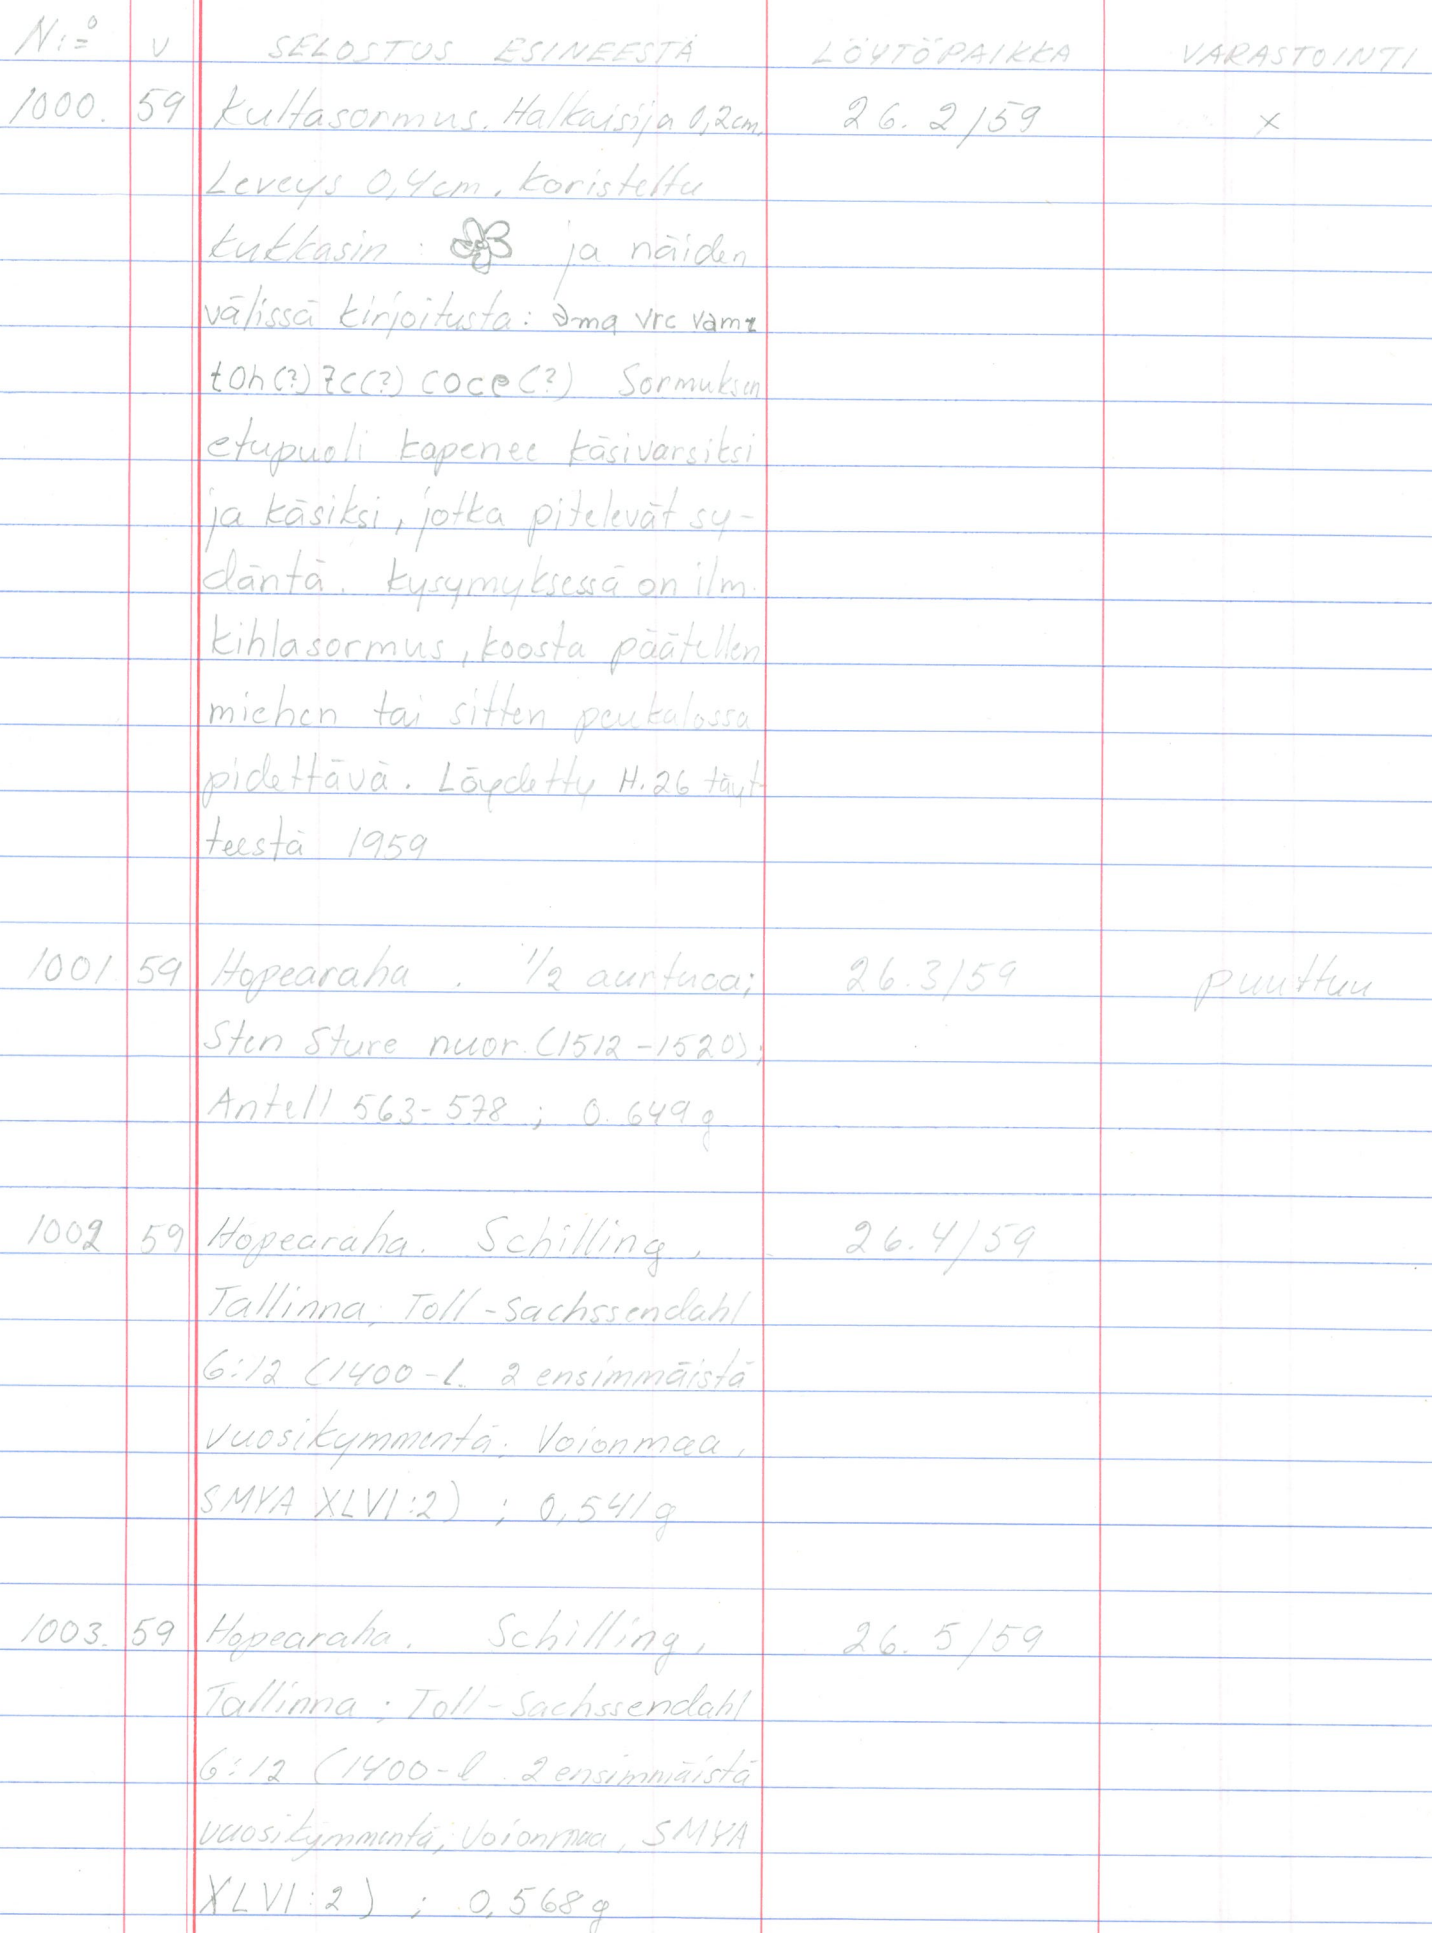 N:o V SELOSTUS ESINEESTÄ LÖYTÖPAIKKA VARASTOINTI
1000. 59 Kultasormus. Halkaisija 0,2cm. 26.2/59 x
Leveys 0,4cm. Koristeltu
kukkasin : ja näiden
välissä kirjoitusta: əma vrc vamz
tOh(?) zc(?) coce(?) Sormuksen
etupuoli kapenee käsivarsiksi
ja käsiksi, jotka pitelevät sy-
däntä. Kysymyksessä on ilm.
kihlasormus, koosta päätellen
miehen tai sitten peukalossa
pidettävä. Löydetty H.26 täyt-
teestä 1959
1001 59 Hopearaha. 1/2 aurtuaa; 26.3/59 puuttuu
Sten Sture nuor. (1512-1520);
Antell 563-578 ; 0.649g
1002 59 Hopearaha. Schilling, 26.4/59
Tallinna; Toll-Sachssendahl
6:12 (1400-l. 2 ensimmäistä
vuosikymmentä; Voionmaa,
SMYA XLVI:2) ; 0,541g
1003. 59 Hopearaha. Schilling, 26.5/59
Tallinna; Toll-Sachssendahl
6:12 (1400-l. 2 ensimmäistä
vuosikymmentä; Voionmaa, SMYA
XLVI:2) ; 0,568g